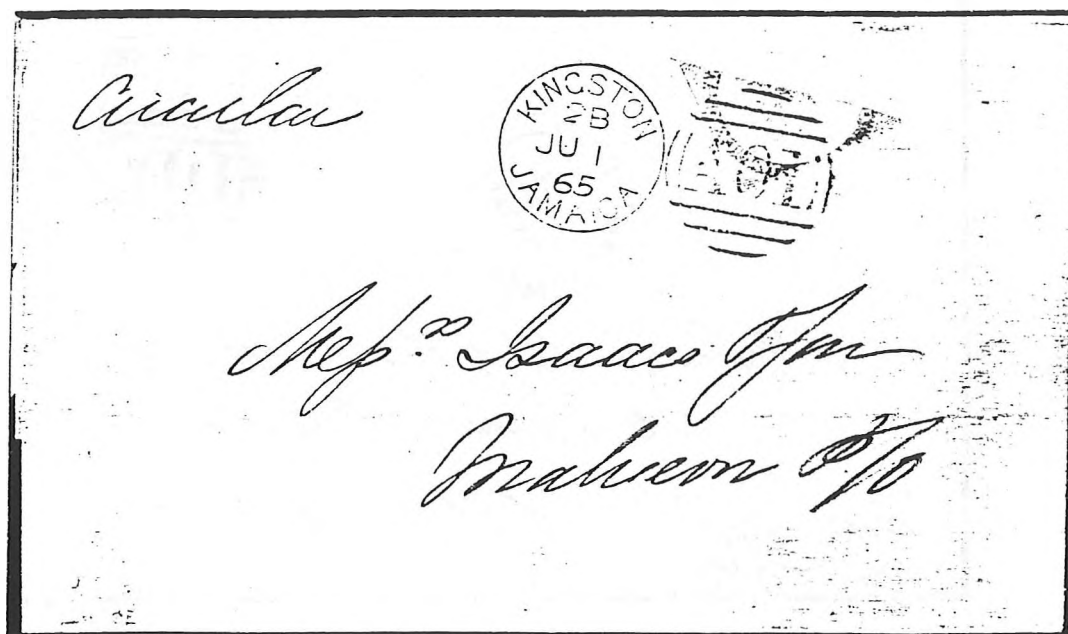 Circular
KINGSTON
2B
JU 1
65
JAMAICA
A01
Mess.rs Isaacs &
Malvern P/O